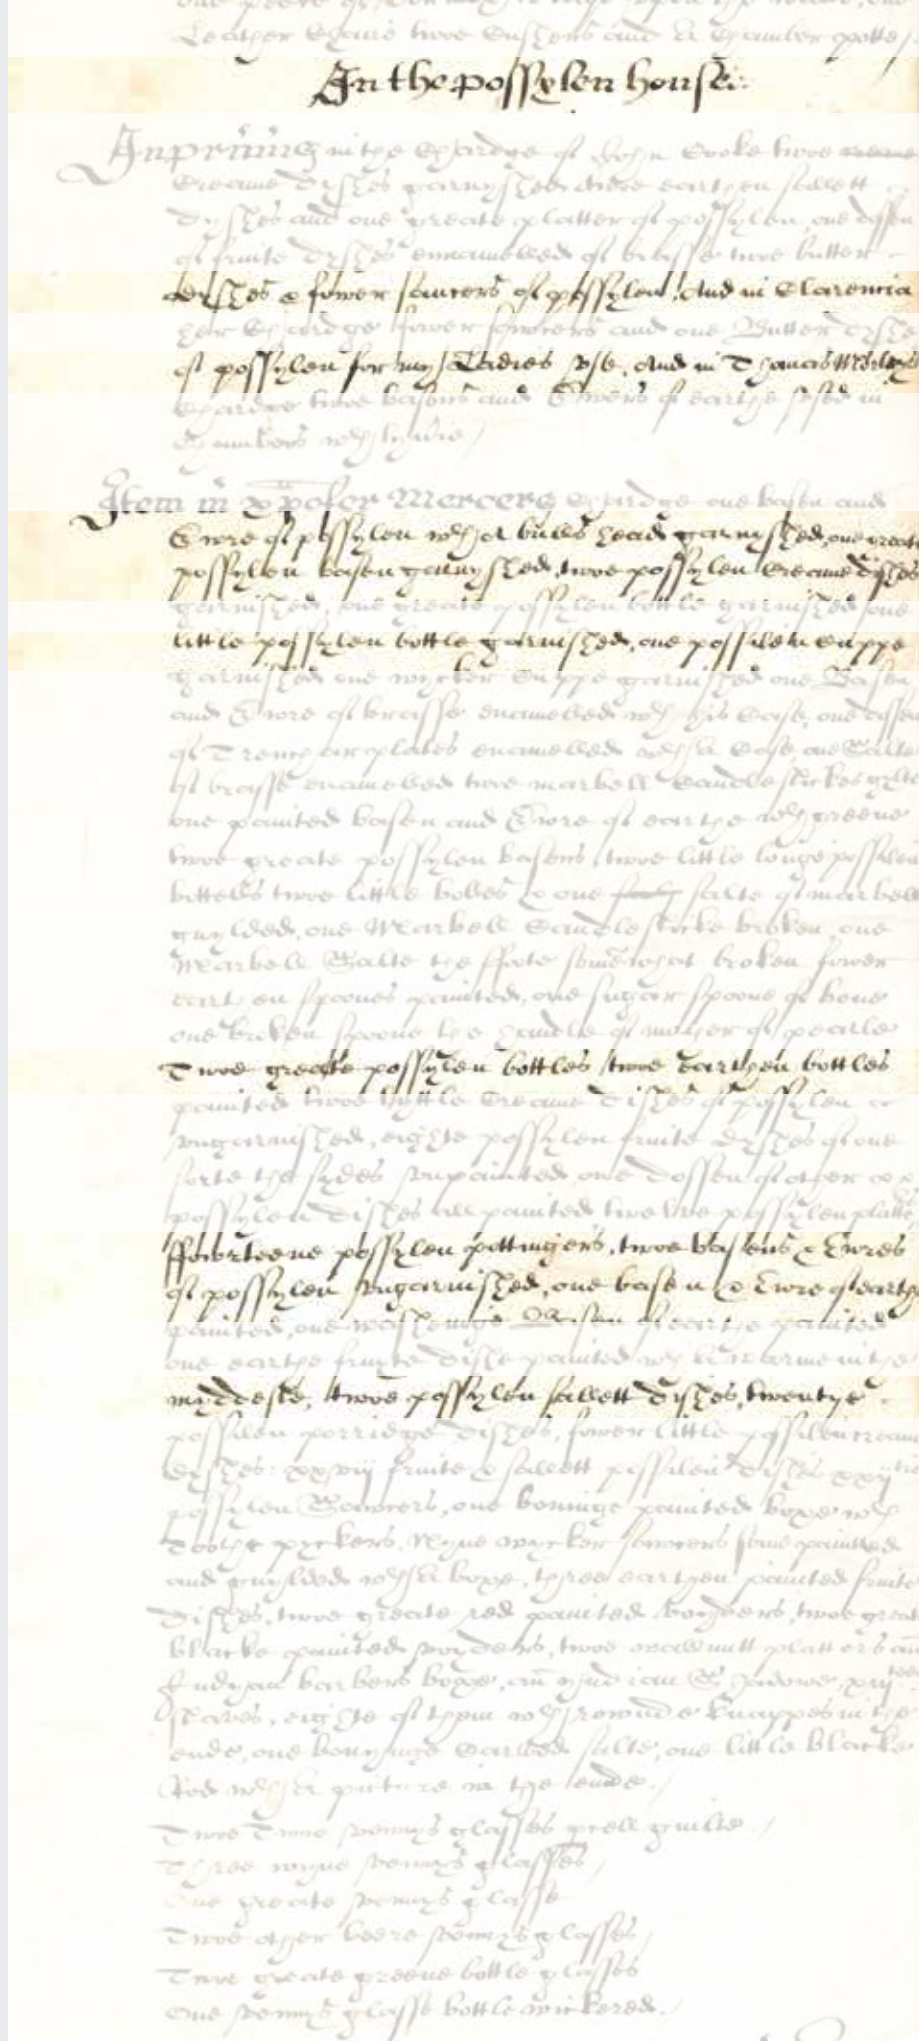 Leather Chaire twoe Cushens and a Chamber potte /
In the possylen house.
Inprimis in the Chardge of John Cooke twoe
Creame dyshes garnyshed twoe earthen sallett
dyshes and one greate platter of possylen, one dossen
of fruite dyshes enameled of brasse twoe butter
dyshes & fower sawcers of possylen. And in Clarencia
her Chardge fower sawcers and one Butter dyshe
of possylen for my Ladies use, And in Thomas
Chardge twoe basons and Ewers of earthe used in
Chambers
Item in xpofer Mercers Chardge one basen and
Ewre of possylen wth a bulls head garnyshed, one greate
possylen basen garnyshed, twoe possylen Creame dishes
garnished, one greate possylen bottle garnished one
little possylen bottle garnished, one possilen Cuppe
garnished one wycker Cuppe garnished one Basen
and Ewre of brasse enameled wth his Case, one dossen
of Trencher plates enameled wth a Case, one Salte
of brasse enameled twoe marbell Candlestickes gylte
one painted basen and Ewre of earthe wth greene
twoe greate possylen basens, twoe little longe possilen
bottells twoe little bolles & one salte of marbell
guylded, one Marbell Candlesticke broken, one
Marbell Salte the ffoote somewhat broken fower
earthen spoones painted, one sugar spoone of bone
one broken spoone the handle of mother of pearle
Twoe greate possylen bottles, twoe earthen bottles
painted twoe lyttle Creame dishes of possylen
ungarnished, eighte possylen fruite dyshes of one
sorte the sydes unpainted one dossen of other
possylen dishes all painted twelve possylen platts
ffowerteene possylen pottingers, twoe basens & Ewres
of possylen ungarnished, one basen & Ewre of earthe
painted, one washeinge Basen of earthe painted
one earthe fruyte dishe painted wth a in the
myddeste, twoe possylen sallett dishes, twentye
possilen porridge dishes, fower little possilen creame
dyshes: xxviij fruite & sallett possilen dishes xxij
possylen Sawcers, one painted boxe wth
toothe pyckers, Nyne wycker sawcers some painted
and guylded wth a boxe, three earthen painted fruite
dishes, twoe greate red painted, twoe greate
blacke painted, twoe wallnutt platters an
Indyan barbers boxe, an Indian Shadowe, xiij
staves, eighte of them wth rownde knappes in the
ende, one Carved salte, one little blacke
Rod wth a picture in the ende. /
Twoe vennys glasses guilte. /
Three wyne vennys glasses /
One greate vennys glasse
Twoe other beere vennys glasses /
Twoe greate greene bottle glasses
One vennys glasse bottle wickered. /